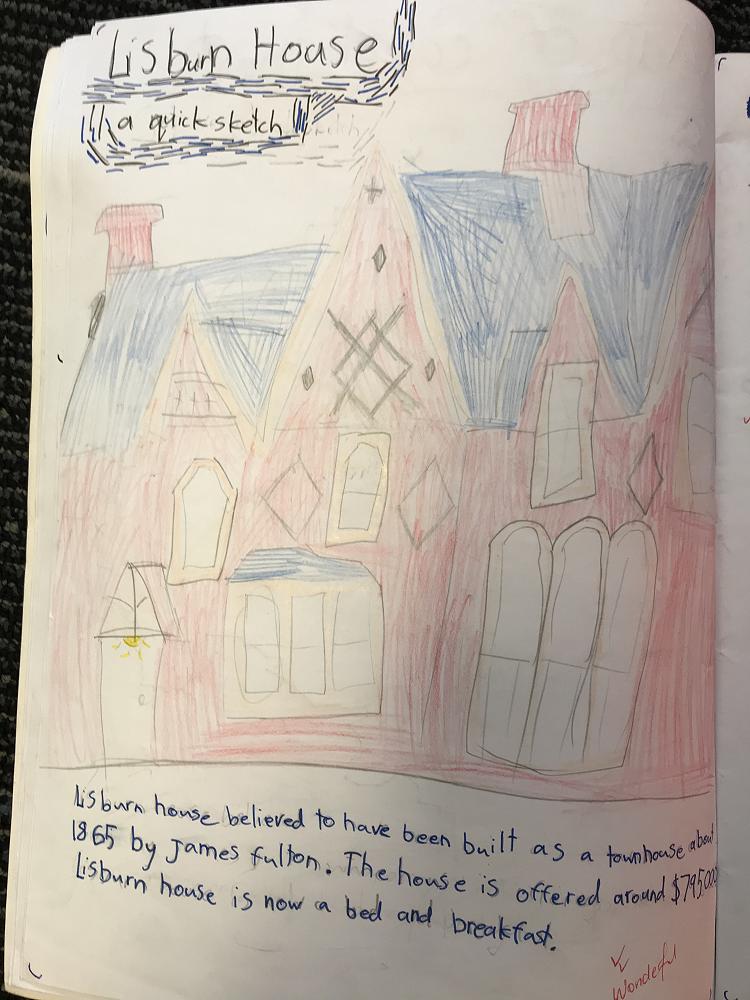 Lisburn House
a quick sketch
Lisburn house believed to have been built as a townhouse about
1865 by James fulton. The house is offered around $795,000
Lisburn house is now a bed and breakfast.
Wonderful